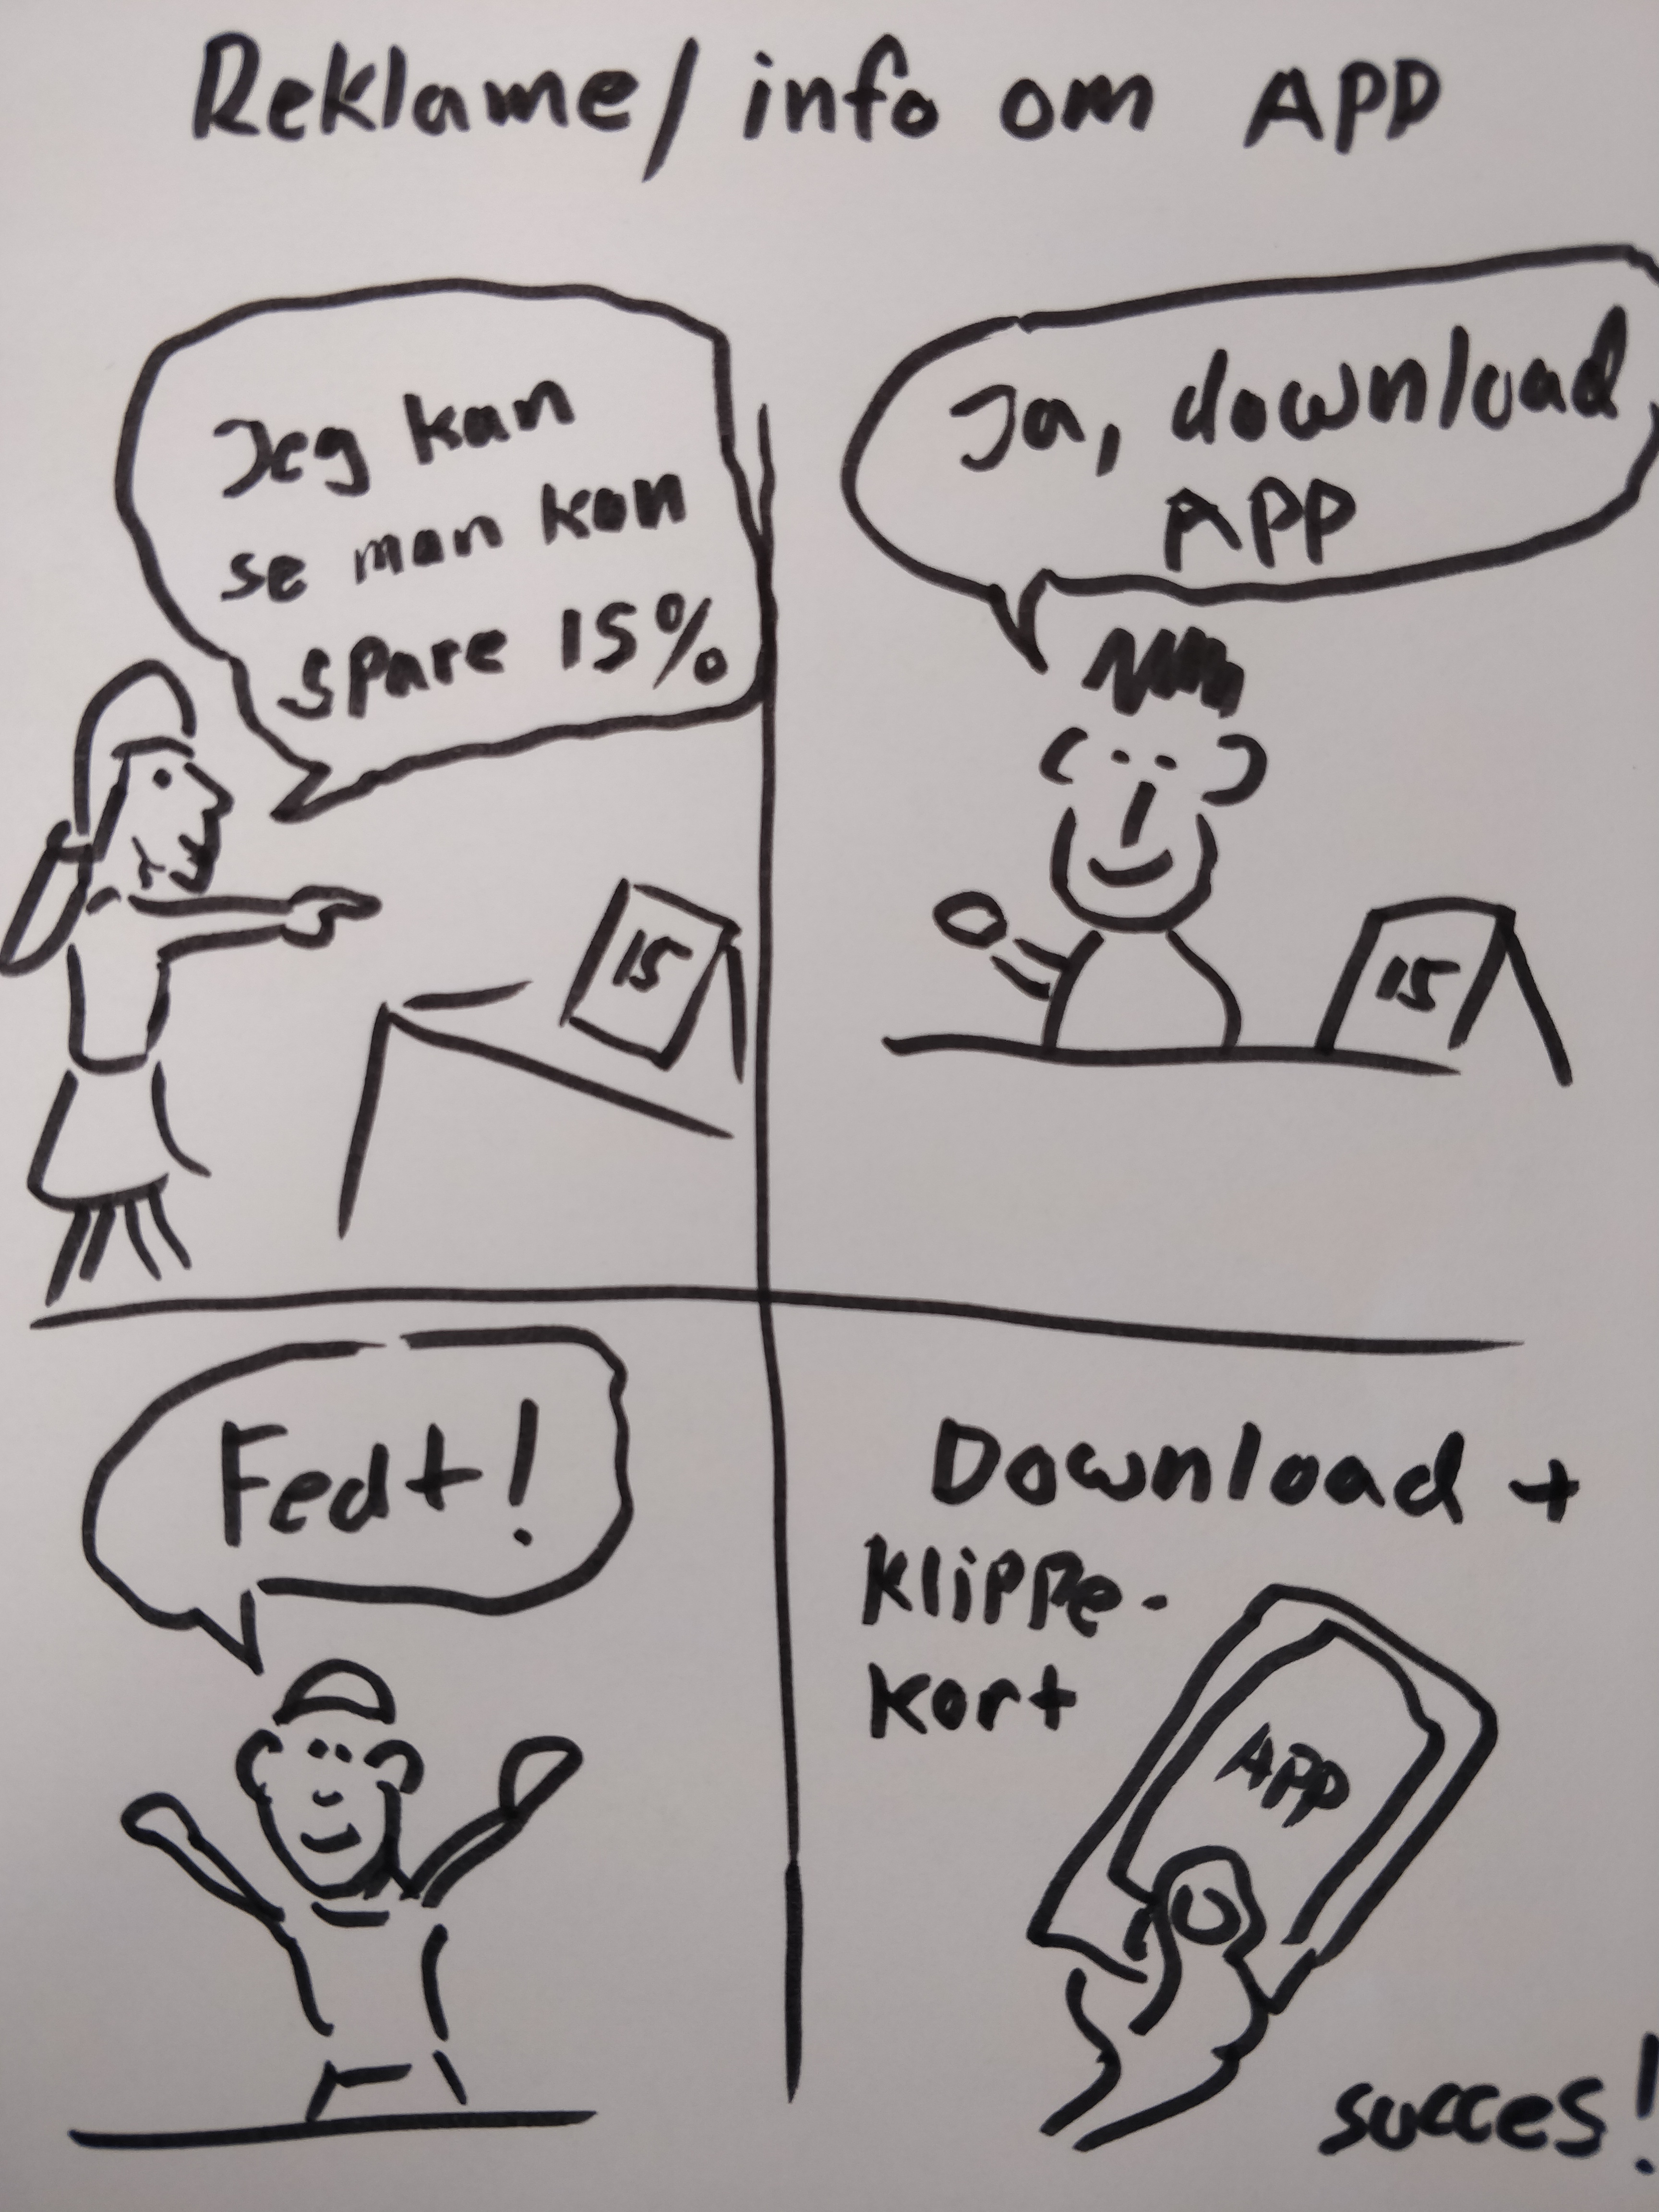 Reklame/ info om APP
Jeg kan
se man kan
spare 15%
15
Ja, download
APP
15
Fedt!
Download +
Klippe-
kort
APP
succes!